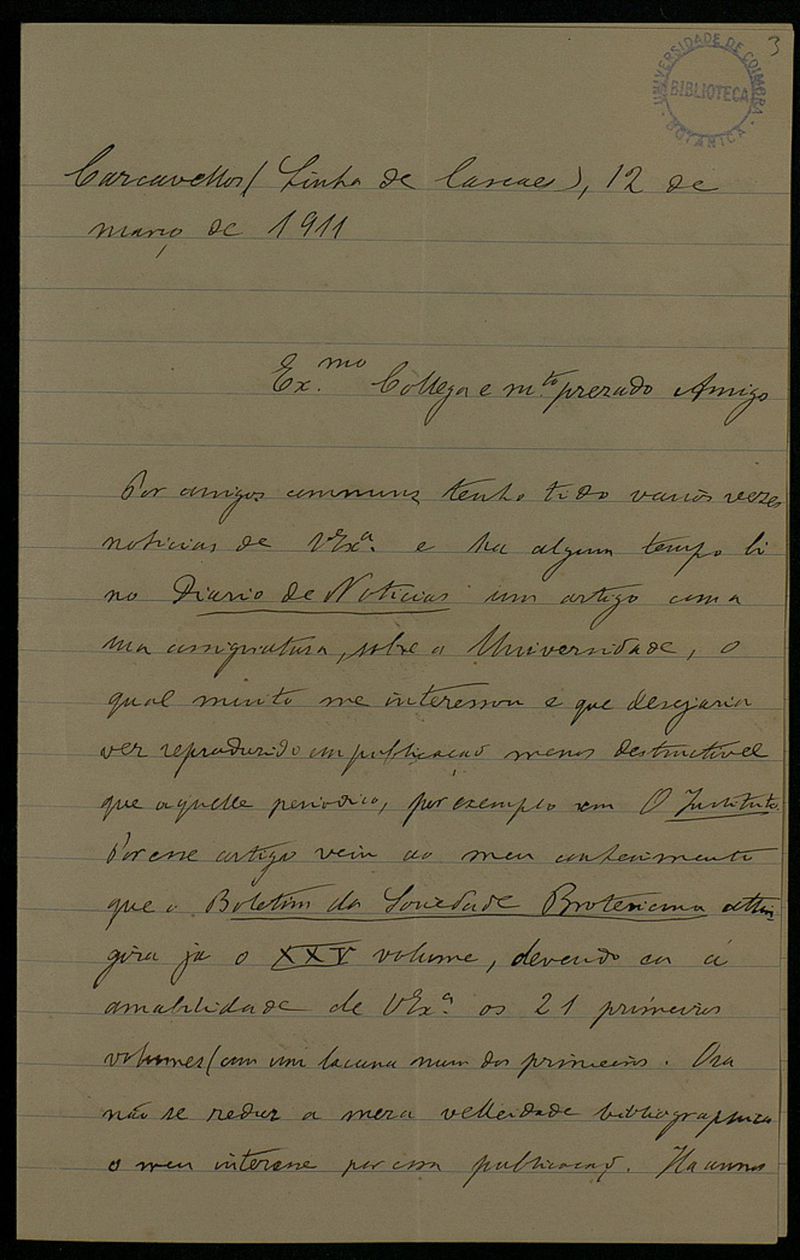 3
UNIVERSIDADE DE COIMBRA
BIBLIOTECA
BOTANICA
Carcavellos (Linha de Cascaes), 12 de
março de 1911
Ex.mo Collega e m.to prezado Amigo
Por amigos communs tenho tido varias vezes
noticias de VExa. e ha algum tempo li
no Diario de Noticias um artigo com a
sua assignatura, sobre a Universidade, o
qual muito me interessou e que desejaria
ver reproduzido em publicação menos destructivel
que aquelle periodico, por exemplo em O Instituto.
Por esse artigo veiu ao meu conhecimento
que o Boletim da Sociedade Broteriana attin-
gira já o XXV volume, devendo eu á
amabilidade de VExa. os 21 primeiros
volumes (com um lacuna num dos primeiros. Ora
não se reduz a mera velleidade bibliographica
o meu interesse por essa publicação. Ha annos